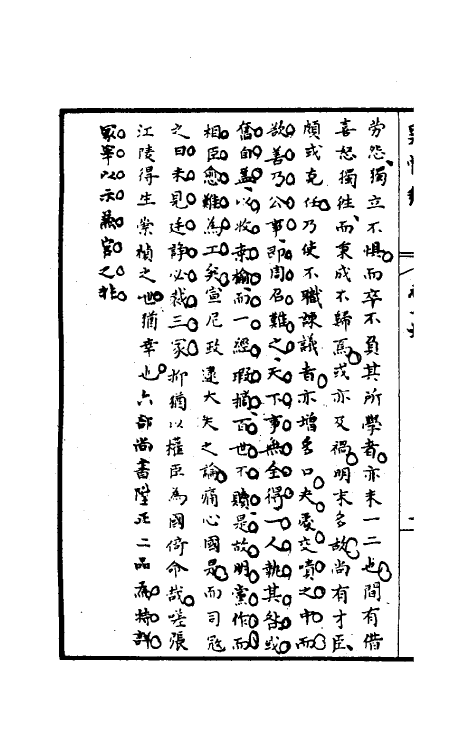 勞怨獨立不惧而卒不負其所學者亦未一二也間有借
喜怒獨徃而秉成不歸焉或亦及禍明末多故尚有才臣
頗或克任乃使不職諫議者亦增多口夫處交嘖之中而
欲善乃公事即周召難之天下事無全得一人執其咎或
奮自蓋以收桑榆而一經瑕摘百世不贖是故明黨作而
相臣愈難為工矣宣尼政逮大夫之論痛心國是而司寇
之日未見廷諍必裁三家抑猶以權臣為國倚命哉嗟張
江陵得生崇禎之世猶幸也六部尚書陞正二品爲特詳
冢宰以示蕪官之非